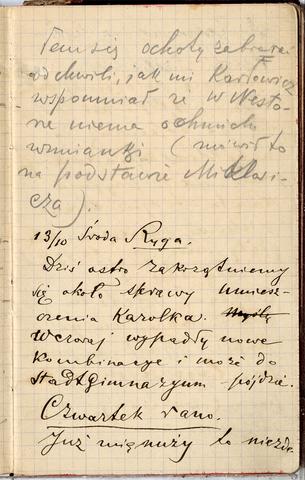 Tem się ochoty zabrawa
od chwili, jak mi Karłowicz
wspomniał że w Nesto-
rze niema o
wzmianki (mówił to
na podstawie Miklosi-
cza).
13/10 Środa Ryga.
Dziś ostro zakrzątniemy
się około sprawy umiesz-
czenia Karolka.
Wczoraj wypadły nowe
kombinacye i może do
Stadtgimnazyum pójdzie.
Czwartek rano.
Już to